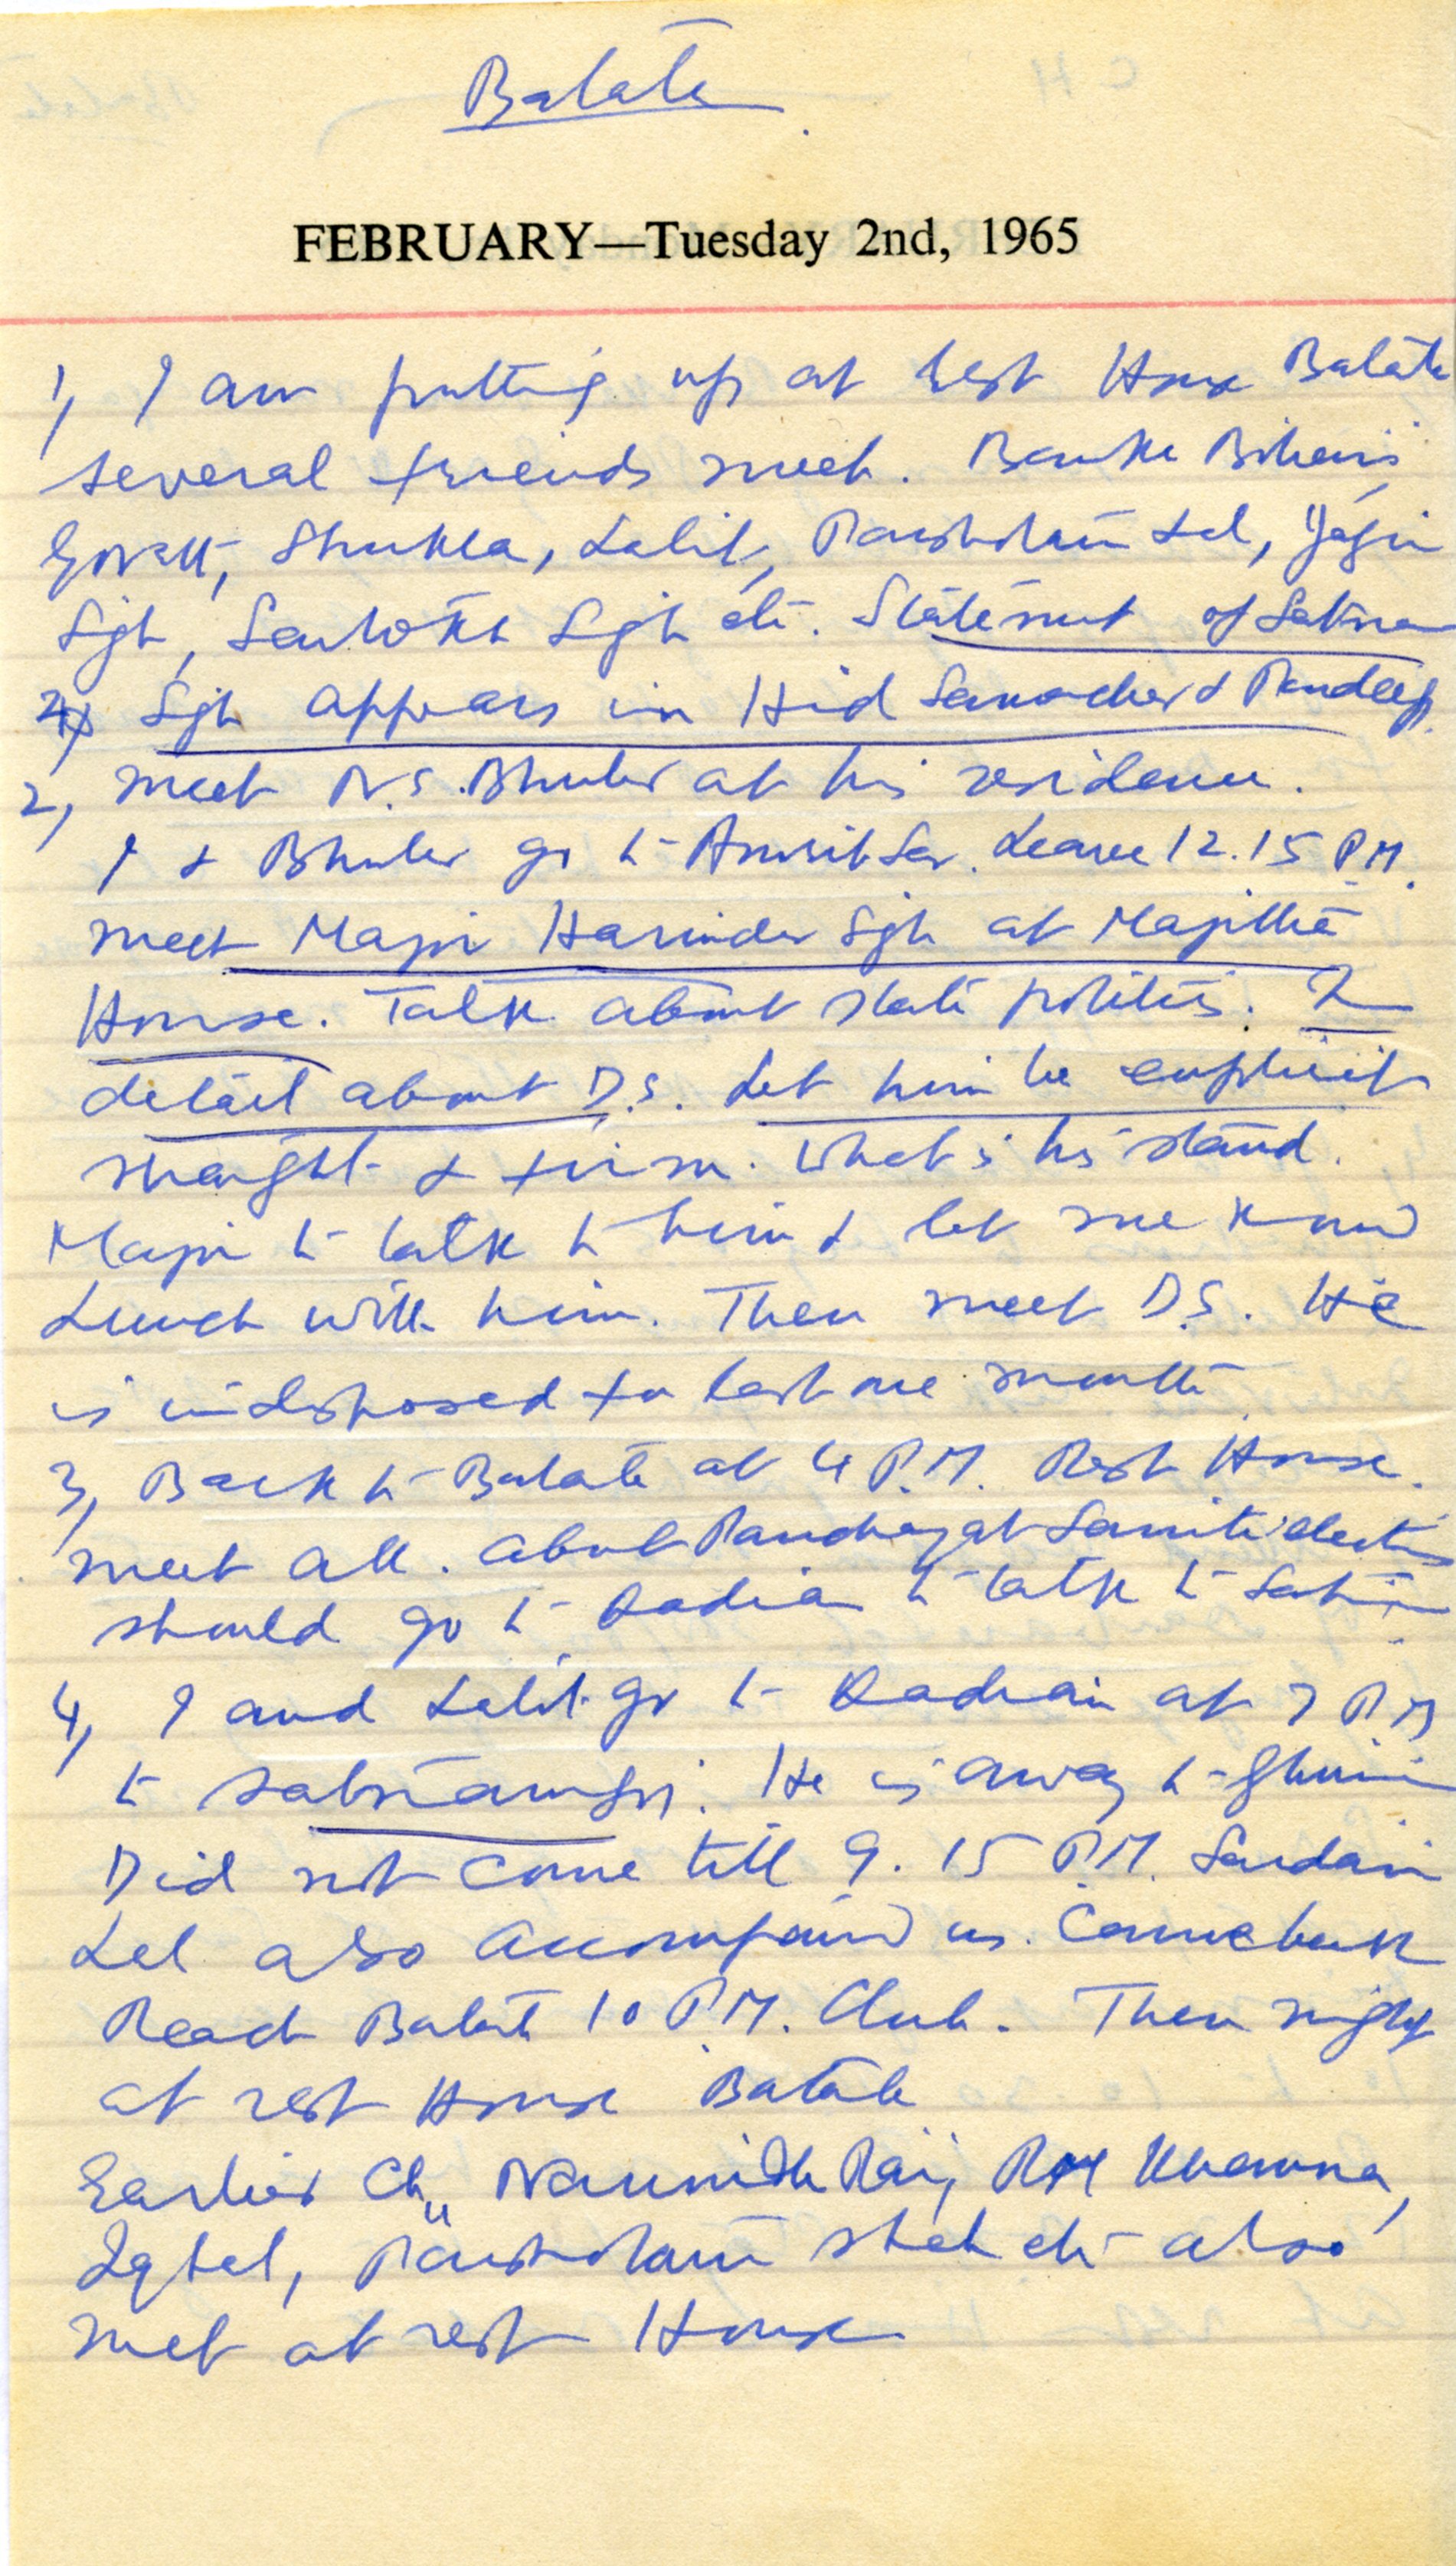 Batala
FEBRUARY—Tuesday 2nd, 1965
1, I am putting up at Rest House Batala
several friends meet. Banke Bihari
Shukla, Lalit, Parshotam Lal, Yogin
Sgh, Santokh Sgh etc. Statement of Satnam
Sgh appears in Hid Samachar & Pardeep.
2, meet N.S. Bhuler at his residence.
I & Bhuler go to Amritsar. Leave 12.15 P.M.
meet Major Harinder Sgh at Majitha
House. Talk about state politics. In
detail about D.S. Let him be explicit
straight & firm. What is his stand.
Major to talk to him & let me know
Lunch with him. Then meet D.S. He
is indisposed for last one month
3, Back to Batala at 4 P.M. Rest House.
meet all. about Panchayat Samiti election
should go to Kadian to talk to Satnam
4, I and Lalit go to Kadian at 7 PM
to Satnamji. He is away to
Did not come till 9.15 P.M. Sardari
Lal also accompanied us. Came back
Reach Batala 10 P.M. Club. Then night
at rest House Batala
Earlier Ch,, Naunidh Rai, Khanna,
Iqbal, Parshotam Shah etc also
met at rest House